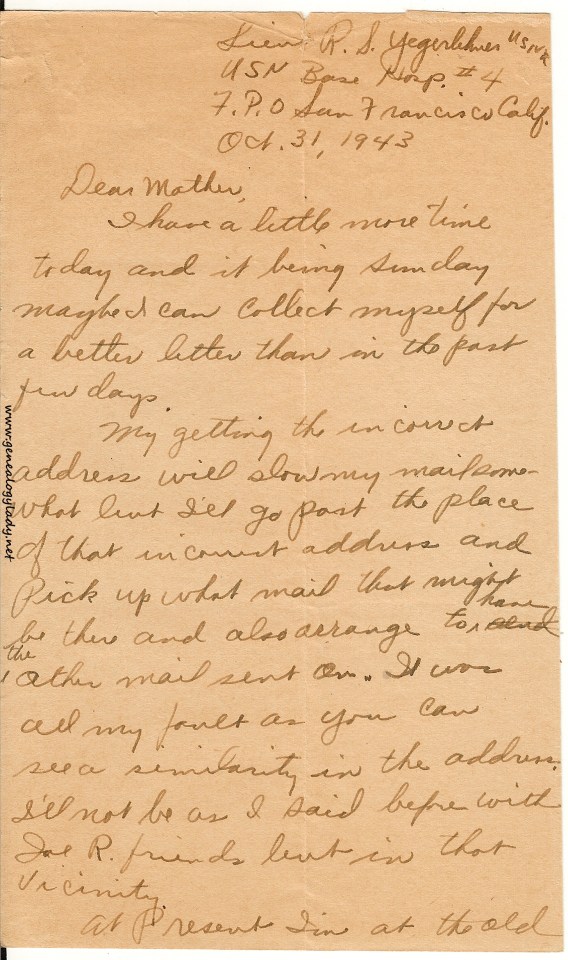 Lieu. R. S. Yegerlehner USNR
USN Base Hosp. #4
F.P.O San Francisco Calif.
Oct. 31, 1943
Dear Mother,
I have a little more time
today and it being Sunday
maybe I can collect myself for
a better letter than in the past
few days.
My getting the incorrect
address will slow my mail some-
what but I'll go past the place
of that incorrect address and
pick up what mail that might
be there and also arrange to have send
the other mail sent on. It was
all my fault as you can
see a similarity in the address.
I'll not be as I said before with
Joe R. friends but in that
vicinity.
At present I'm at the old
www.genealogylady.net